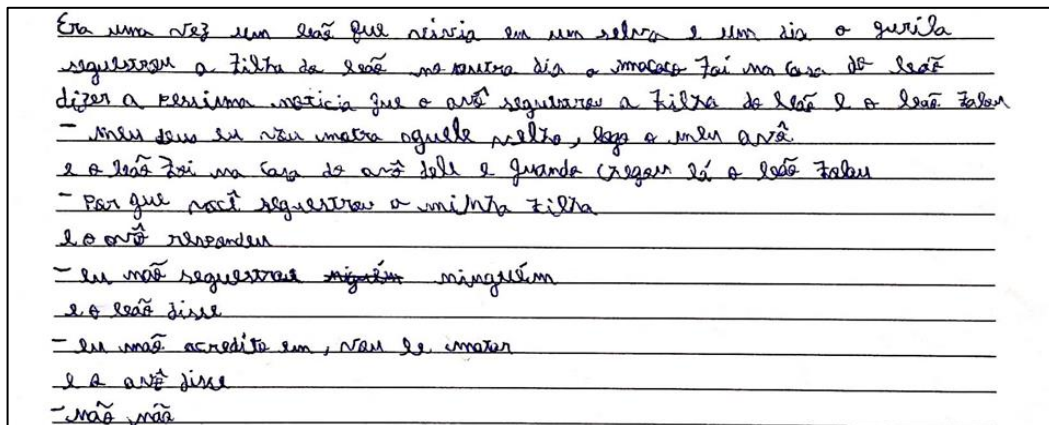 Era uma vez um leão que vivia em um selva e um dia o gurila
seguestrou a filha do leão no outro dia o macaco foi na casa do leão
dizer a pessima noticia que o avô seguestrou a filha do leão e o leão falou
- meu deus eu vou matra aquele velho, logo o meu avô
e o leão foi na casa do avô dele e quando chegou lá o leão falou
- Por que você seguestrou a minha filha
e o avô respondeu
- eu não seguestrei ninguém
e o leão disse
- eu não acredito em, vou le matar
e o avô disse
- não não